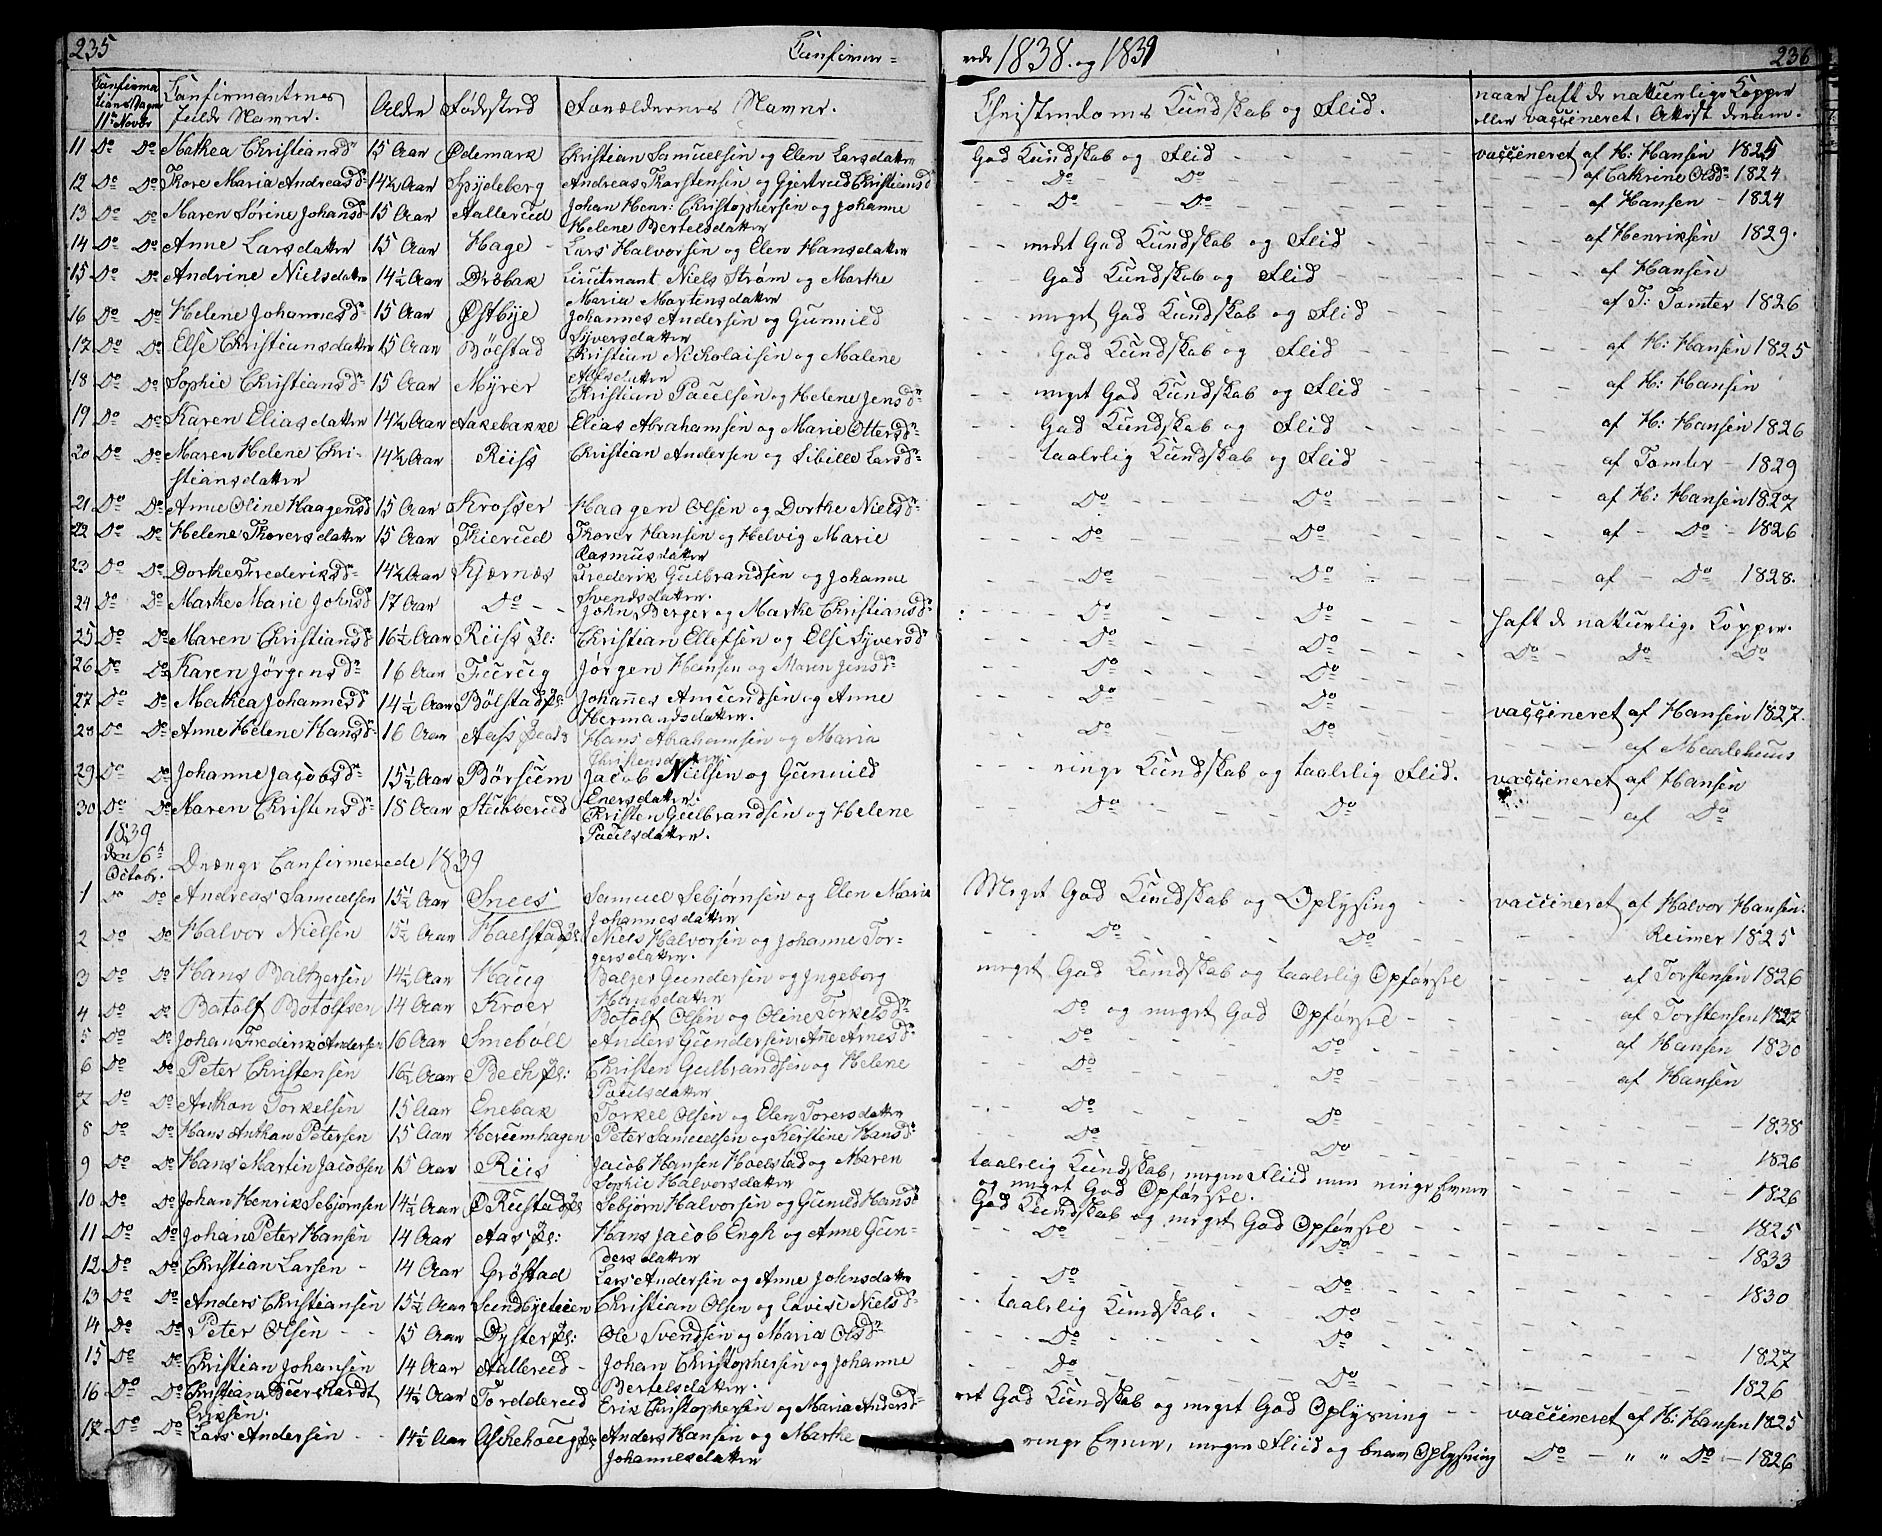 235 Confirme=
rede 1838. og 1839 236
Confirma
tions Dagen
11te Novbr
Confirmanternes
fulde Navne.
Alder Fødested Forældrenes Navne.
Christendoms Kundskab og Flid.
naar haft de naturlige Kopper
eller vaccineret, Attest derom.
11 Do Do Mathea Christiansdr 15 Aar Ødemark Christian Samuelsen og Elen Larsdatter God Kundskab og Flid - vaccineret af H: Hansen 1825
12 Do Do Thore Maria Andreasdr 14½ Aar Spydeberg Andreas Thorstensen og Gjertrud Christiansd Do Do af Cathrine Olsdr 1824
13 Do Do Maren Sørine Johansd 15 Aar Aallerud Johan Henr: Christophersen og Johanne Do Do af Hansen - 1824
Helene Bertelsdatter
14 Do Do Anne Larsdatter 15 Aar Hage - Lars Halvorsen og Elen Hansdatter meget God Kundskab og Flid af Henriksen 1829.
15 Do Do Andrine Nielsdatter 14½ Aar Drøbak Lieutenant Niels Strøm og Marthe God Kundskab og Flid af Hansen
Maria Martensdatter
16 Do Do Helene Johannesdr 15 Aar Østbye Johannes Andersen og Gunnild meget God Kundskab og Flid af T: Tomter 1826
Syversdatter
17 Do Do Else Christiansdatter 15 Aar Bølstad Christian Nickolaisen og Malene God Kundskab og Flid af H: Hansen 1825
18 Do Do Sophie Christiansdr 15 Aar Myrer Christian Paulsen og Helene Jensdr meget God Kundskab og Flid af H: Hansen
19 Do Do Karen Eliasdatter 14½ Aar Aakebakke Elias Abrahamsen og Marie Ottersdr God Kundskab og Flid af H: Hansen 1826
20 Do Do Maren Helene Chri- 14½ Aar Riiss Christian Andersen og Sibille Larsdr taalelig Kundskab og Flid af Tomter - 1829
stiansdatter
21 Do Do Anne Oline Haagensd 15 Aar Krosser Haagen Olsen og Dorthe Nielsdr Do Do af H: Hansen 1827
22 Do Do Helene Thorersdatter 15 Aar Thierud Thorer Hansen og Helvig Marie Do Do af - Do - 1826
Rasmusdatter
23 Do Do Dorthe Frederiksdr 14½ Aar Kjærnæs Frederik Gulbrandsen og Johanne Do Do af - Do 1828.
Svendsdatter.
24 Do Do Marthe Marie Johnsd 17 Aar Do John Berger og Marthe Christiansdr Do Do haft de naturlige Kopper.
25 Do Do Maren Christiansd 16½ Aar Riiss Pl: Christian Ellefsen og Else Syversdr Do Do Do Do Do
26 Do Do Karen Jörgensdr 16 Aar Jörgen Hansen og Maren Jensdr Do Do
27 Do Do Mathea Johannesd 14½ Aar Bölstad Pl: Johannes Amundsen og Anne Do Do vaccineret af Hansen 1827.
Hermandsdatter.
28 Do Do Anne Helene Hansdr 16 Aar Aass Hans Abrahamsen og Maria Do Do af Maalehuus
Christensdatter
29 Do Do Johanne Jacobsdr 15½ Aar Börsum Jacob Nielsen og Gunnild ringe Kundskab og taalelig Flid. vaccineret af Hansen
Enersdatter.
30 Do Do Maren Christensdr 18 Aar Stubberud Christen Gulbrandsen og Helene Do Do af Do
Paulsdatter.
1839
den 6te
Octobr.
Drænge Confirmerede 1839
1 Do Do Andreas Samuelsen 15½ Aar Snees Samuel Sebjørnsen og Elen Maria Meget God Kundskab og Oplysing vaccineret af Halvor Hansen
Johannesdatter
2 Do Do Halvor Nielsen 15½ Aar Haelstad Pl: Niels Halvorsen og Johanne Tor- Do Do Reimer 1825
gersdatter.
3 Do Do Hans Baltzersen 14½ Aar Haug Balzer Gundersen og Ingeborg meget God Kundskab og taalelig Opførsel af Torstensen 1826
Hansdatter
4 Do Do Botolf Botolfsen 14 Aar Kroer Botolf Olsen og Oline Torkelsdr Do og meget God Opførsel af Torstensen 1827
5 Do Do Johan Frederik Andersen 16 Aar Smeböll Anders Gundersen, Anne Arnesdr Do Do af Hansen 1830
6 Do Do Peter Christensen 16½ Aar Bech Pl: Christen Gulbrandsen og Helene Do Do af Hansen
Paulsdatter
7 Do Do Anthon Torkelsen 15 Aar Enebak Torkel Olsen og Elen Torersdatter Do Do
8 Do Do Hans Anthon Petersen 15 Aar Horumhagen Peter Samuelsen og Kerstine Hansdr Do Do 1838
9 Do Do Hans Martin Jacobsen 15 Aar Riis Jacob Hansen Haelstad og Maren taalelig Kundskab, megen Fliid men ringe Evner 1826
Sophie Halvorsdatter og meget God Opførsel.
10 Do Do Johan Henrik Sebjørnsen 14½ Aar Ø Rustad Pl: Sebjørn Halvorsen og Gunild Hansdr God Kundskab og meget God Opførsel 1826
11 Do Do Johan Peter Hansen 14 Aar Aas Pl: Hans Jacob Engh og Anne Gun- Do Do 1825
dersdatter
12 Do Do Christian Larsen - 14 Aar Gröstad Lars Andersen og Anne Johnsdatter Do Do 1833
13 Do Do Anders Christiansen 15½ Aar Sundbyeteien Christian Olsen og Lovise Nielsdr taalelig Kundskab. Do 1830
14 Do Do Peter Olsen 15 Aar Dyster Pl: Ole Svendsen og Maria Olsdr Do Do
15 Do Do Christian Johansen 14 Aar Aallerud - Johan Christophersen og Johanne Do Do 1827
Bertelsdatter.
16 Do Do Christian Buurchardt 14½ Aar Tordderud Erik Christophersen og Maria Andersdr God Kundskab og meget God Oplysning 1826
Eriksen. vaccineret af H: Hansen 1825
17 Do Do Lars Andersen 14½ Aar Askehoug Pl: Anders Hansen og Marthe ringe Evner, megen Fliid og Oplysning Do - " " Do - 1826
Johannesdatter